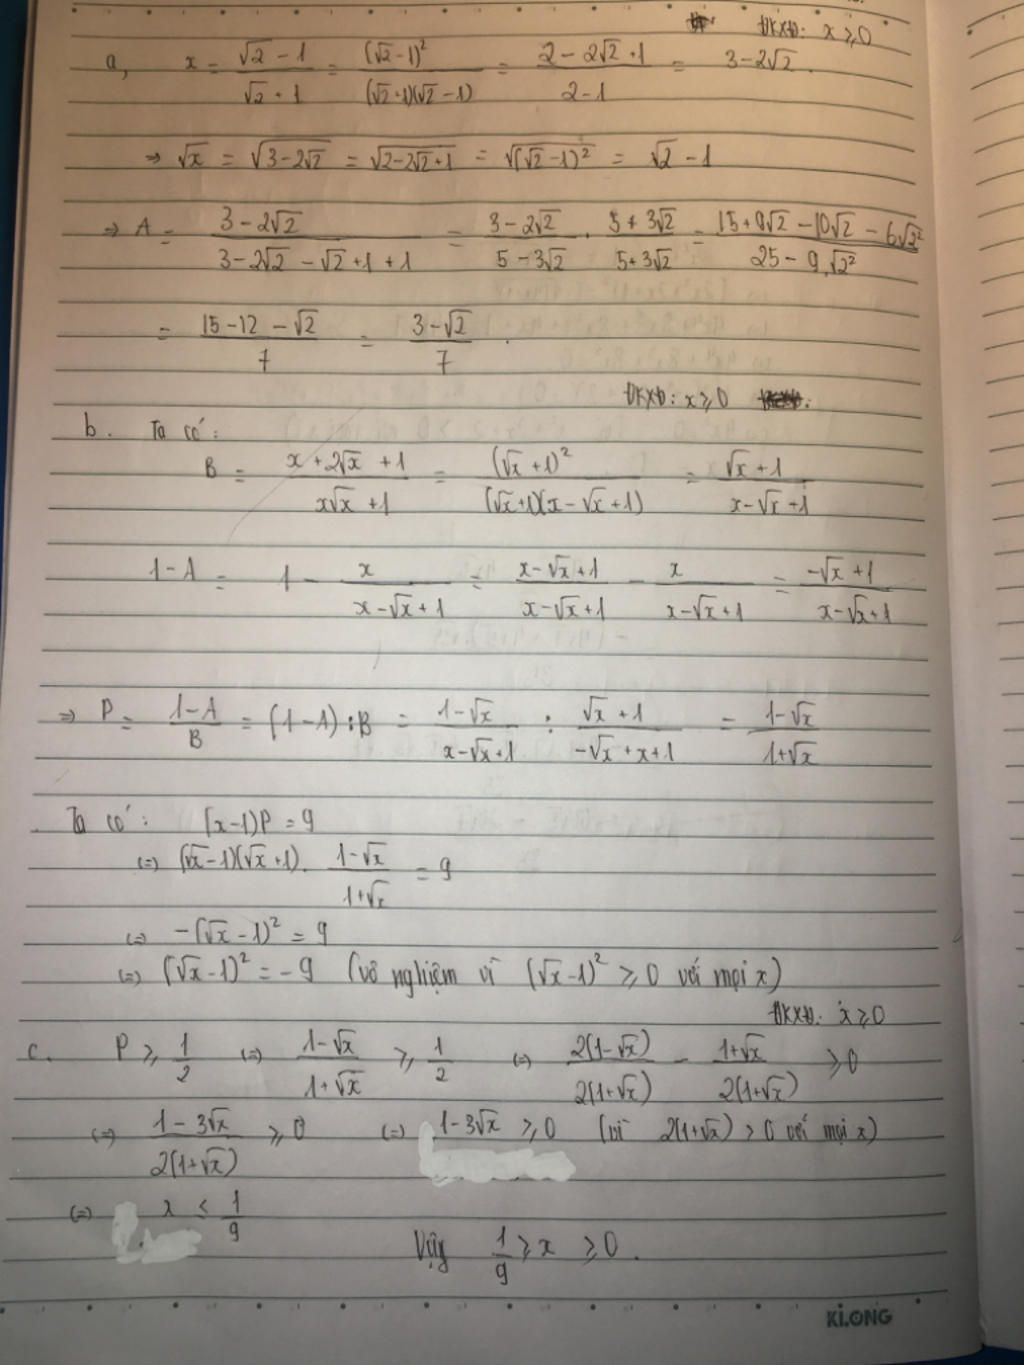 ĐKXĐ: x ≥ 0
a, x = (√2 - 1)/(√2 + 1) = (√2-1)²/((√2+1)(√2-1)) = (2 - 2√2 + 1)/(2-1) = 3-2√2
⇒ √x = √(3-2√2) = √(2-2√2+1) = √((√2-1)²) = √2 - 1
⇒ A = (3-2√2)/(3-2√2-√2+1+1) = (3-2√2)/(5-3√2) . (5+3√2)/(5+3√2) = (15+9√2-10√2-6√2²)/(25-9.√2²)
= (15-12-√2)/7 = (3-√2)/7 .
ĐKXĐ: x ≥ 0
b. Ta có:
B = (x+2√x+1)/(x√x+1) = (√x+1)²/((√x+1)(x-√x+1)) = (√x+1)/(x-√x+1)
1-A = 1 - x/(x-√x+1) = (x-√x+1)/(x-√x+1) - x/(x-√x+1) = (-√x+1)/(x-√x+1)
⇒ P = (1-A)/B = (1-A):B = (1-√x)/(x-√x+1) : (√x+1)/(-√x+x+1) = (1-√x)/(1+√x)
Ta có: (x-1)P = 9
(=) (√x-1)(√x+1). (1-√x)/(1+√x) = 9
(=) -(√x-1)² = 9
(=) (√x-1)² = -9 (vô nghiệm vì (√x-1)² ≥ 0 với mọi x)
ĐKXĐ: x ≥ 0
c. P ≥ 1/2 (=) (1-√x)/(1+√x) ≥ 1/2 (=) 2(1-√x)/(2(1+√x)) - (1+√x)/(2(1+√x)) ≥ 0
(=) (1-3√x)/(2(1+√x)) ≥ 0 (=) 1-3√x ≥ 0 (vì 2(1+√x) > 0 với mọi x)
(=) x ≤ 1/9
Vậy 1/9 ≥ x ≥ 0.
KLONG